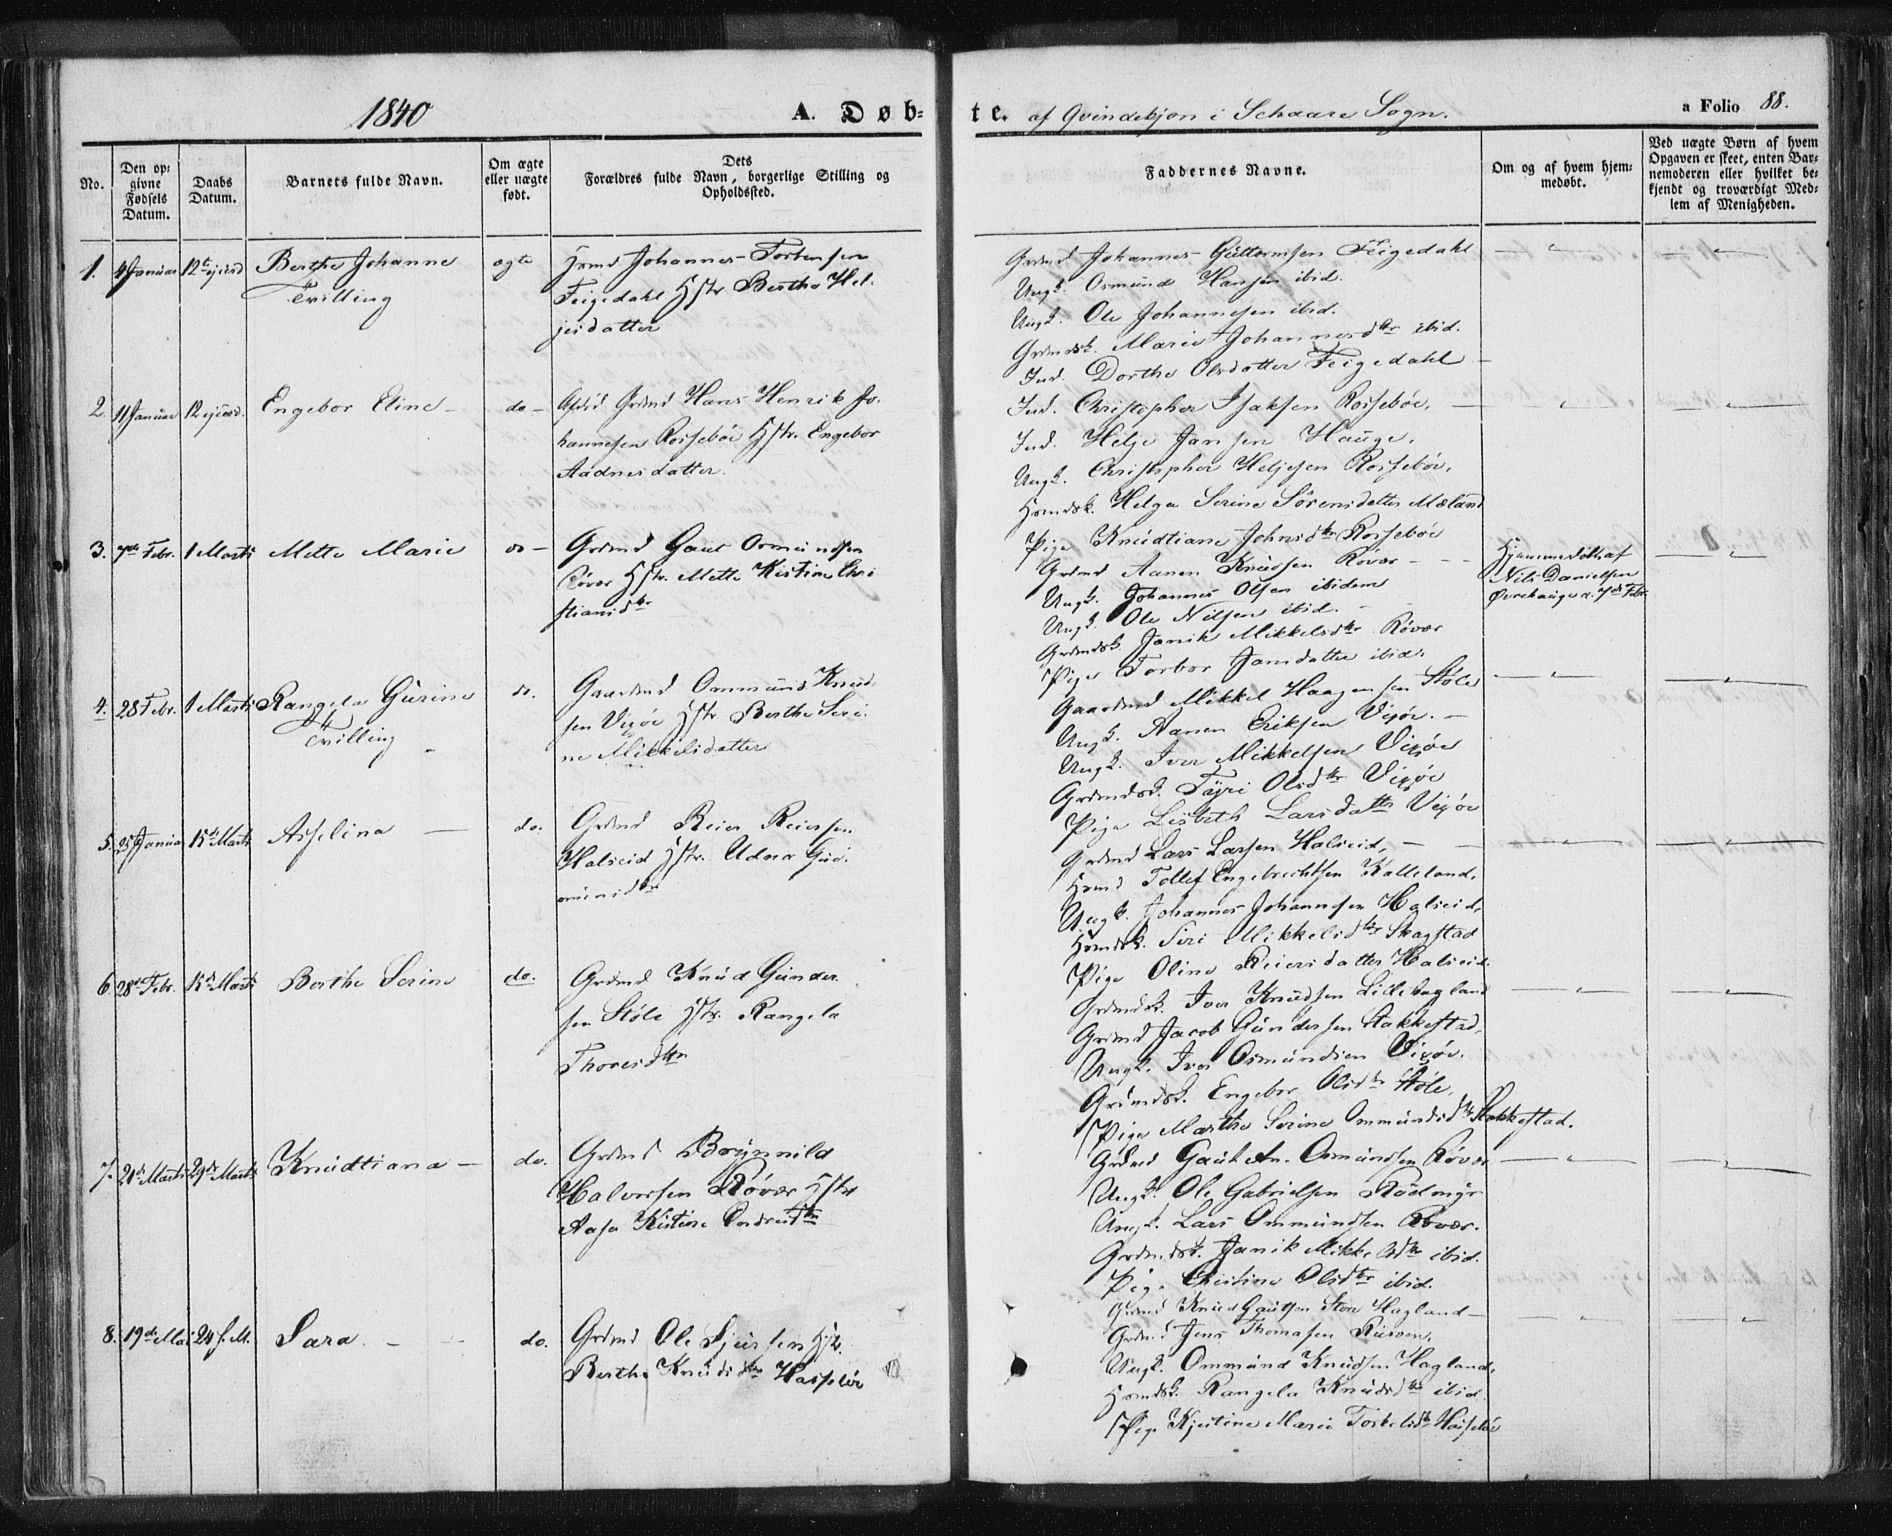 1840
A. Døbte. af Qvindekjøn i Schaare Sogn.
a Folio 88.
No.
Den opgivne Fødsels Datum.
Daabs Datum.
Barnets fulde Navn.
Om ægte eller uægte født.
Dets Forældres fulde Navn, borgerlige Stilling og Opholdssted.
Faddernes Navne.
Om og af hvem hjemmedøbt.
Ved uægte Børn af hvem Opgaven er skeet, enten Barnemoderen eller hvilket bekjendt og troværdigt Medlem af Menigheden.
1. 4 Januar 12te ejusd Berthe Johanne ægte
Tvilling
Hsmd Johannes Torkensen
Feigedahl Hstr Berthe Hel-
jesdatter
Grdmd Johannes Guttormsen Feigedahl
Ungk. Osmund Hansen ibid.
Ungk. Ole Johannesen ibid.
Grdmdsk. Marie Johannesdtr ibid.
Ind. Dorthe Olsdatter Feigedahl
2. 11 Januar 12 ejusd. Engebor Eline do
Afdød Grdmd Hans Henrik Jo-
hannesen Rossebøe Hstr. Engebor
Aadnesdatter.
Ind. Christopher Isaksen Rossebøe,
Ind. Helje Jansen Hauge,
Ungk. Christopher Heljesen Rossebøe,
Hsmdsk. Helga Serine Sørensdatter Mæland
Pige Knudtiane Johnsdtr Rossebøe
3. 7de Febr. 1 Marts Mette Marie do
Grdmd Gaut Osmundsen
Røvær Hstr. Mette Kistine Chri
stiansdtr
Grdmd Aanen Knudsen Røvær
Ungk. Johannes Olsen ibidem
Ungk. Ole Nilsen ibid.
Grdmdsk. Janik Mikkelsdtr Røvær
Pige Torbor Jansdatter ibid.
Hjemmedøbt af
Nils Danielsen
Øvrehauge d. 7de Febr.
4. 28 Febr. 1 Marts Rangela Gurine do.
Tvilling
Gaardmd Ommund Knud-
sen Vixøe Hstr Berthe Seri-
ne Mikkelsdatter
Gaardmd Mikkel Haagensen Støle
Ungk. Aanen Eriksen Vixøe.
Ungk. Iver Mikkelsen Vixøe
Grdmdsk. Tyri Olsdtr Vixøe
Pige Lisbeth Larsdatter Vixøe
5. 25 Januar 15de Marts Asselina do.
Grdmd Reier Reiersen
Halseid Hstr. Udna Gud-
munsdtr
Grdmd Lars Larsen Halseid,
Hsmd Tollef Engebrechtsen Kalleland,
Ungk. Johannes Johannesen Halseid,
Hsmdsk. Siri Mikkelsdtr Skagstad
Pige Oline Reiersdatter Halseid
6. 28de Febr. 15de Marts Berthe Serine do.
Grdmd Knud Gunder-
sen Støle Hstr. Rangela
Thoresdtr
Grdmdsk. Iver Knudsen Lillehagland
Grdmd Jacob Gundersen Stakkestad,
Ungk. Iver Osmundsen Vixøe.
Grdmdsk. Engebor Olsdtr Støle,
Pige Marthe Serine Ommundsdtr Stakkestad.
7. 21de Marts 29de Marts Knudtiana do.
Grdmd Brynnild
Halvorsen Røvær Hstr
Aasa Kistine Endresdtr
Grdmd Gaute An. Osmundsen Røvær
Ungk. Ole Gabrielsen Rødmyr
Ungk. Lars Ommundsen Røvær.
Grdmdsk. Janik Mikkelsdtr ibid.
Pige Christine Olsdtr ibid.
8. 19de Mai 24 s. M. Sara. do.
Grdmd Ole Sjursen Hstr.
Berthe Knudsdtr Hasseløe
Grdmd Knud Gautsen Store Hagland
Grdmd Jens Thomasen
Ungk. Ommund Knudsen Hagland,
Hsmdsk. Rangela Knudsdtr ibid.
Pige Kjistine Marie Torkelsdtr Hasseløe